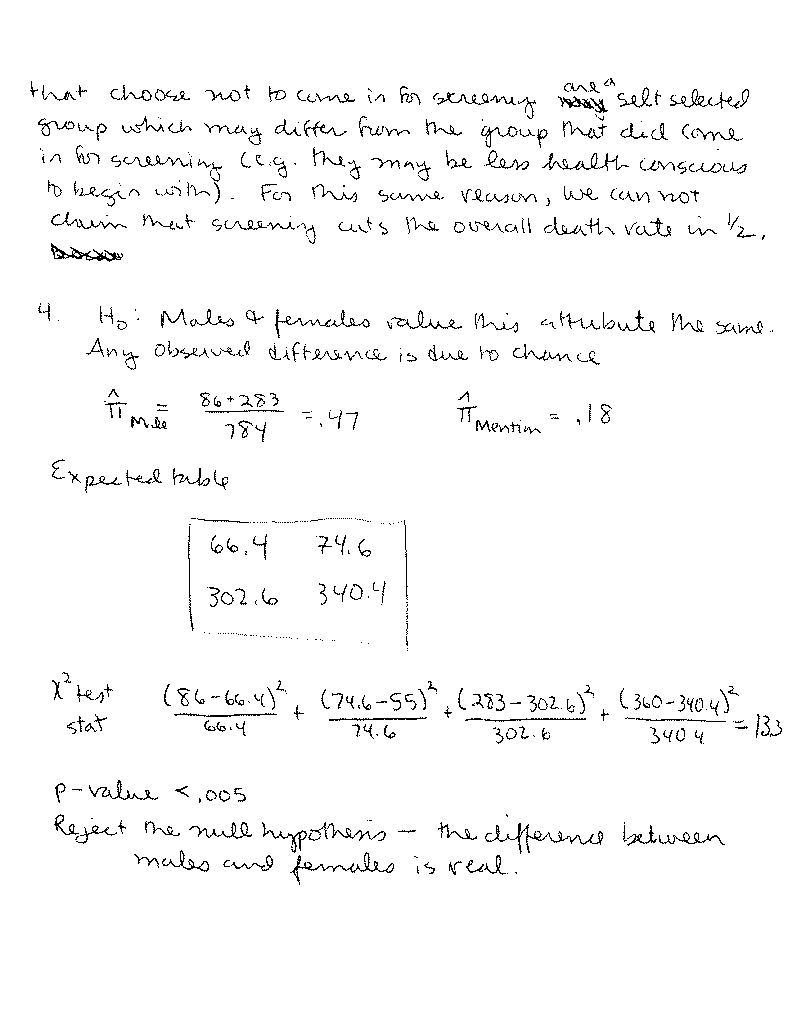 that choose not to come in for screening are a self selected
group which may differ from the group that did come
in for screening (e.g. they may be less health conscious
to begin with). For this same reason, we can not
claim that screening cuts the overall death rate in 1/2.
4. H₀: Males & females value this attribute the same.
Any observed difference is due to chance
π̂ Male = (86+283)/784 = .47 π̂ Mention = .18
Expected table
66.4 74.6
302.6 340.4
χ² test stat (86-66.4)²/66.4 + (74.6-55)²/74.6 + (283-302.6)²/302.6 + (360-340.4)²/340.4 = 13.3
p-value < .005
Reject the null hypothesis — the difference between
males and females is real.